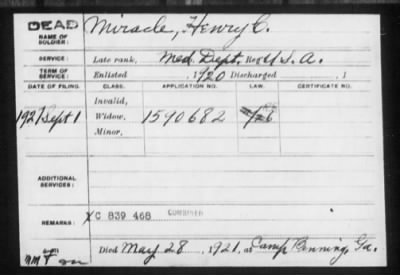 DEAD
NAME OF SOLDIER: Miracle, Henry C.
SERVICE: Late rank, Med. Dept. Reg U.S.A.
TERM OF SERVICE: Enlisted , 1920 Discharged , 1
DATE OF FILING. CLASS. APPLICATION NO. LAW. CERTIFICATE NO.
Invalid,
1927 Sept 1 Widow, 1590682
Minor,
ADDITIONAL SERVICES:
REMARKS: XC 839 468 COMBINED
Died May 28, 1921, at Camp Benning, Ga.